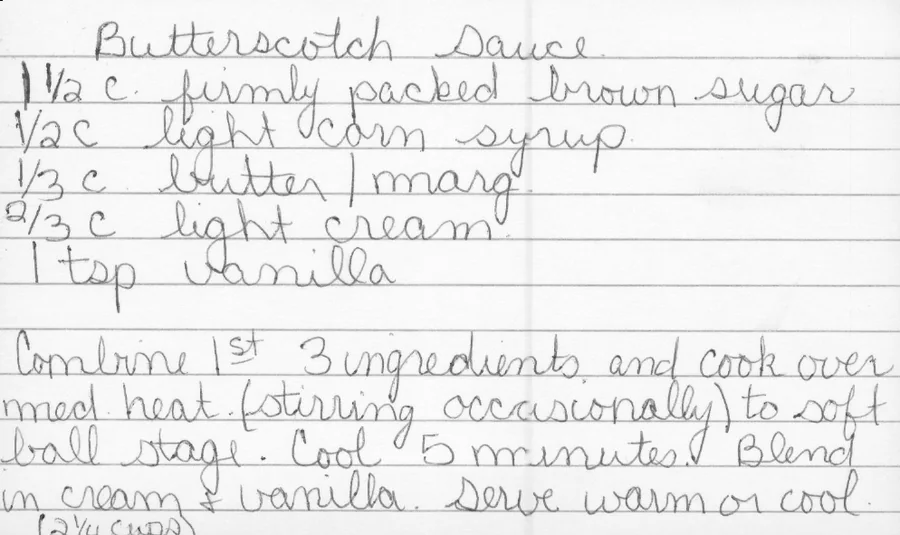 Butterscotch Sauce
1 1/2 c. firmly packed brown sugar
1/2 c light corn syrup
1/3 c butter / marg.
2/3 c light cream
1 tsp vanilla
Combine 1st 3 ingredients and cook over
med. heat (stirring occasionally) to soft
ball stage. Cool 5 minutes. Blend
in cream & vanilla. Serve warm or cool.
(2 1/4 cups)